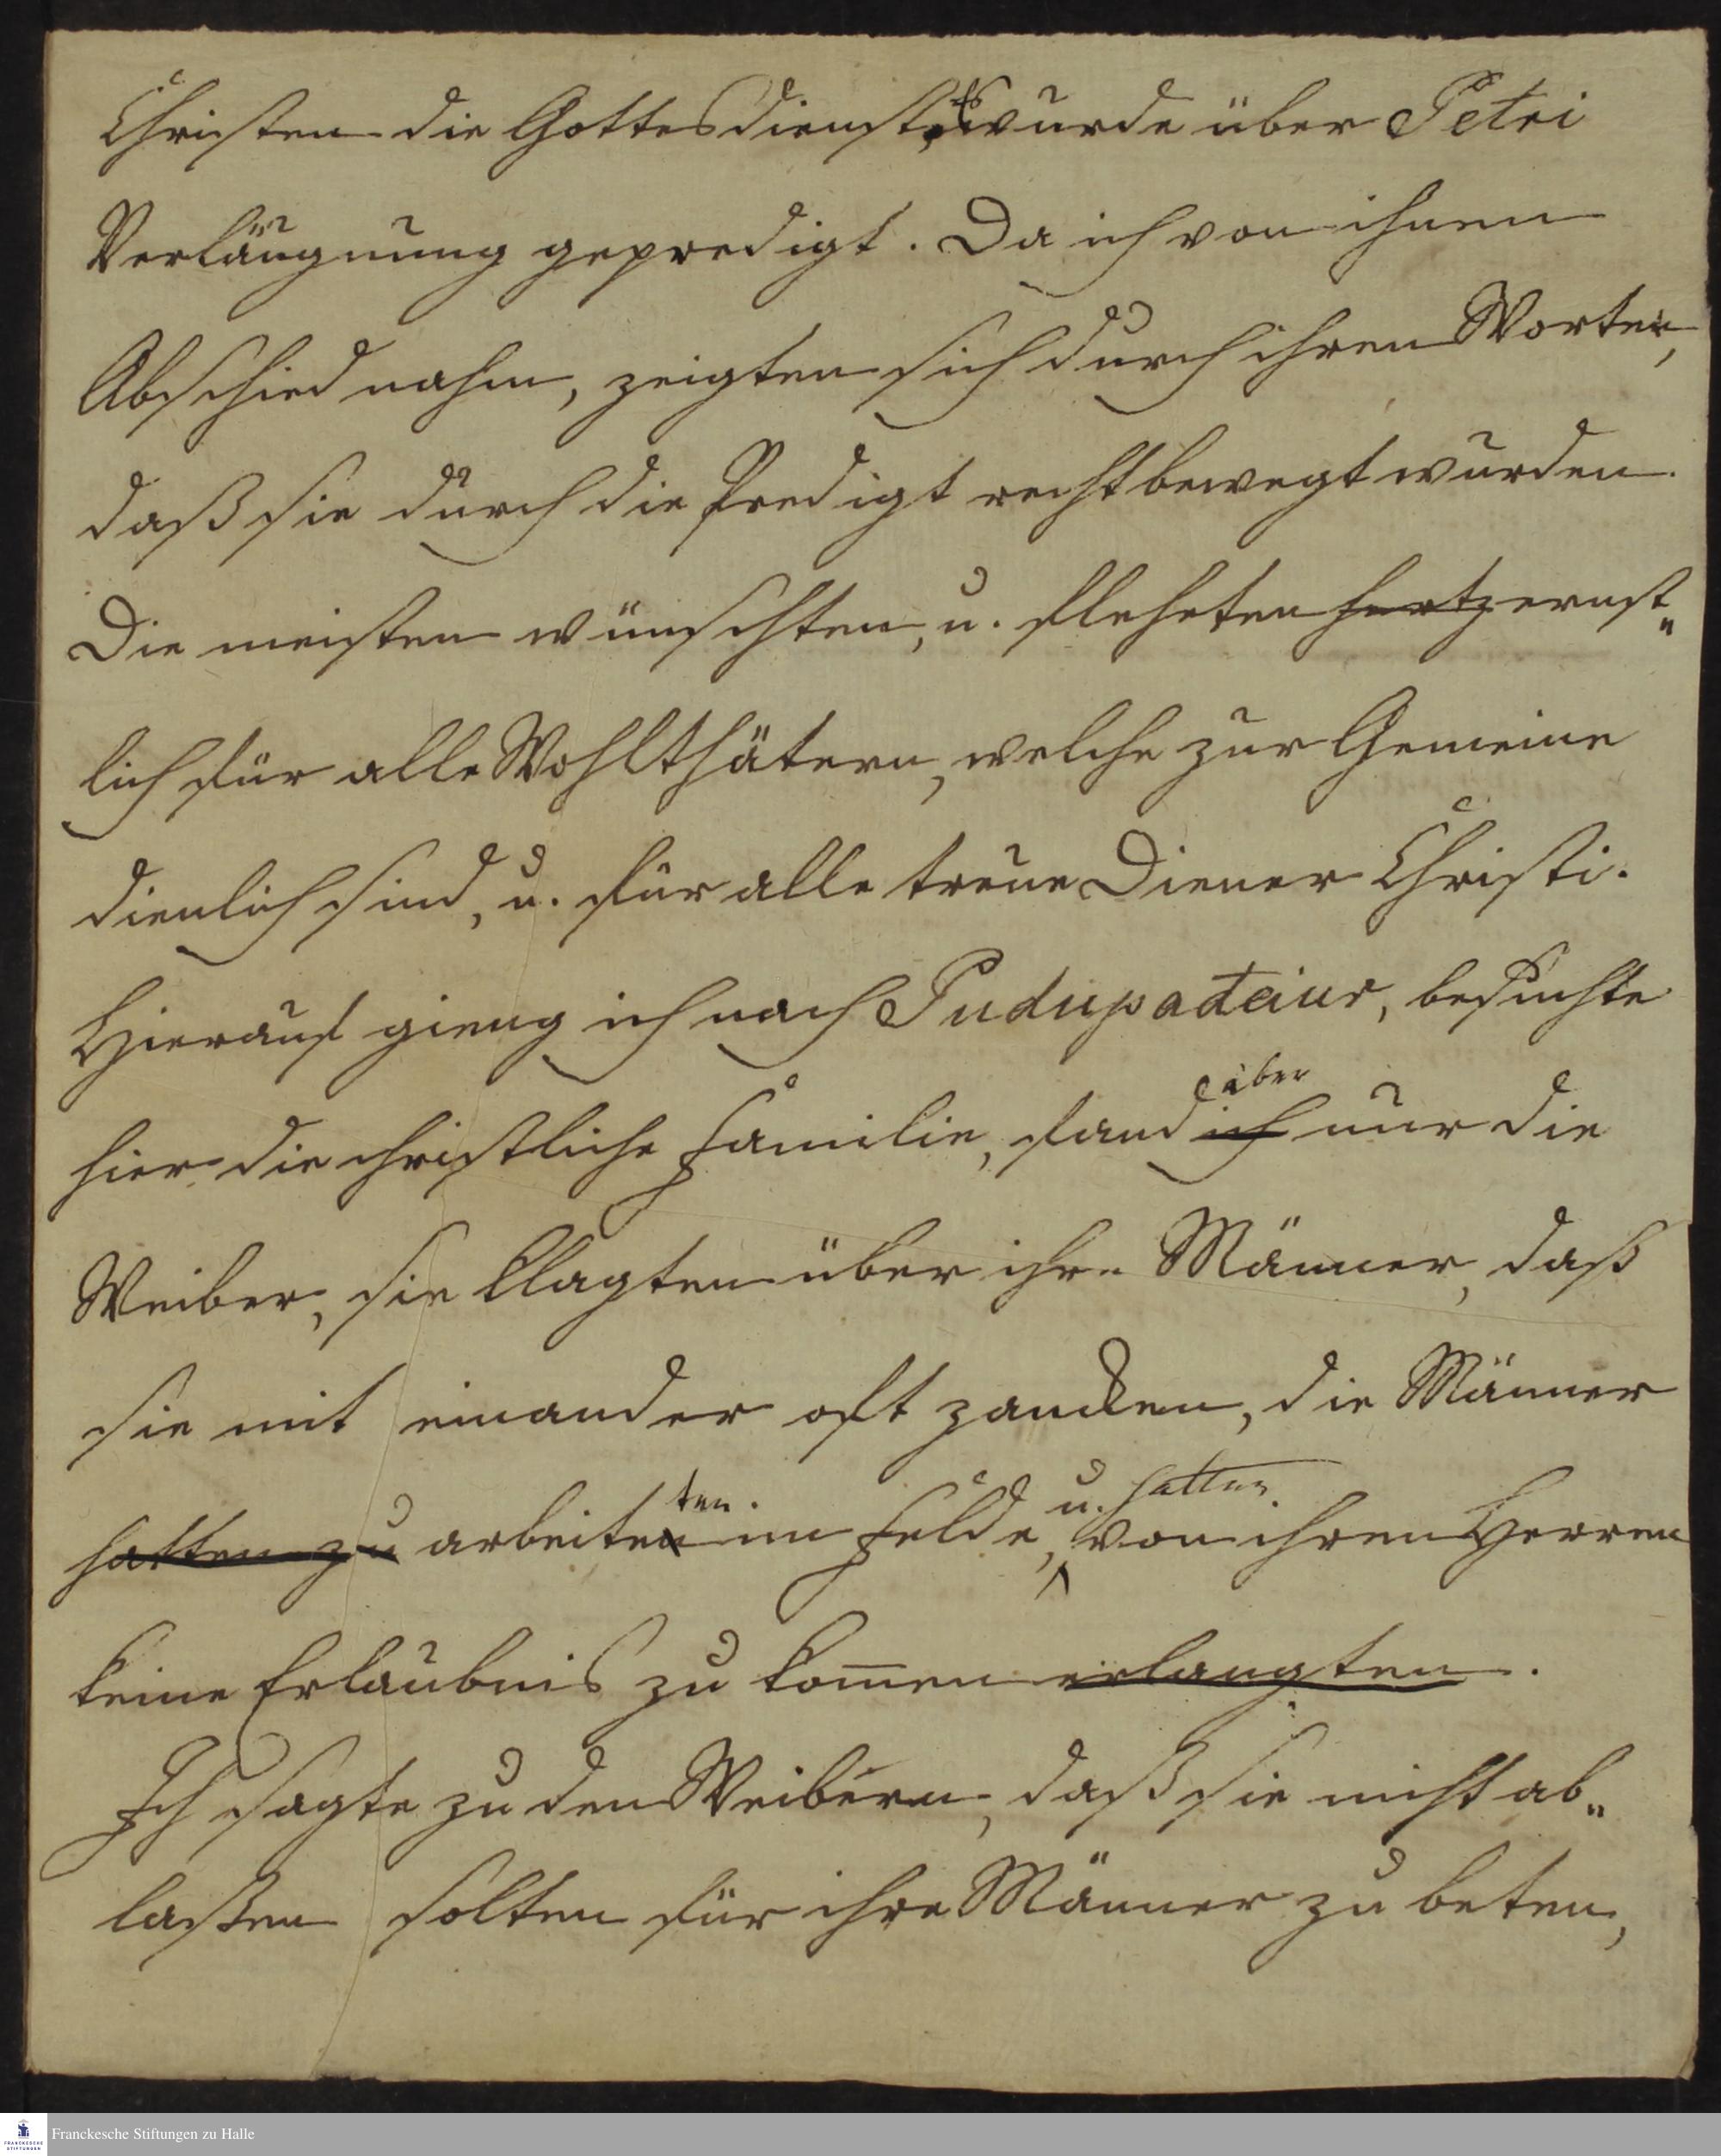 Christen die Gottesdienst, es wurde über Petri
Verläugnung gepredigt. Da ich von ihnen
Abschied nahm, zeigten sich durch ihren Worten,
daß sie durch die Predigt recht bewegt wurden.
Die meisten wünschten, u. fleheten hertz ernst„
lich für alle Wohlthätern, welche zur Gemeine
dienlich sind, u. für alle treue Diener Christi.
Hierauf gieng ich nach Pudupadeiur, besuchte
hier die christliche Familie, fand ich aber nur die
Weiber, sie klagten über ihre Männer, daß
sie mit einander oft zancken, die Männer
hatten zu arbeiten ten. im Felde, u. hatten von ihren Herren
keine Erlaubnis zu kom̅en erlangten.
Ich sagte zu den Weibern, daß sie nicht ab„
laßen solten für ihre Männer zu beten,
FRANCKESCHE STIFTUNGEN
Franckesche Stiftungen zu Halle